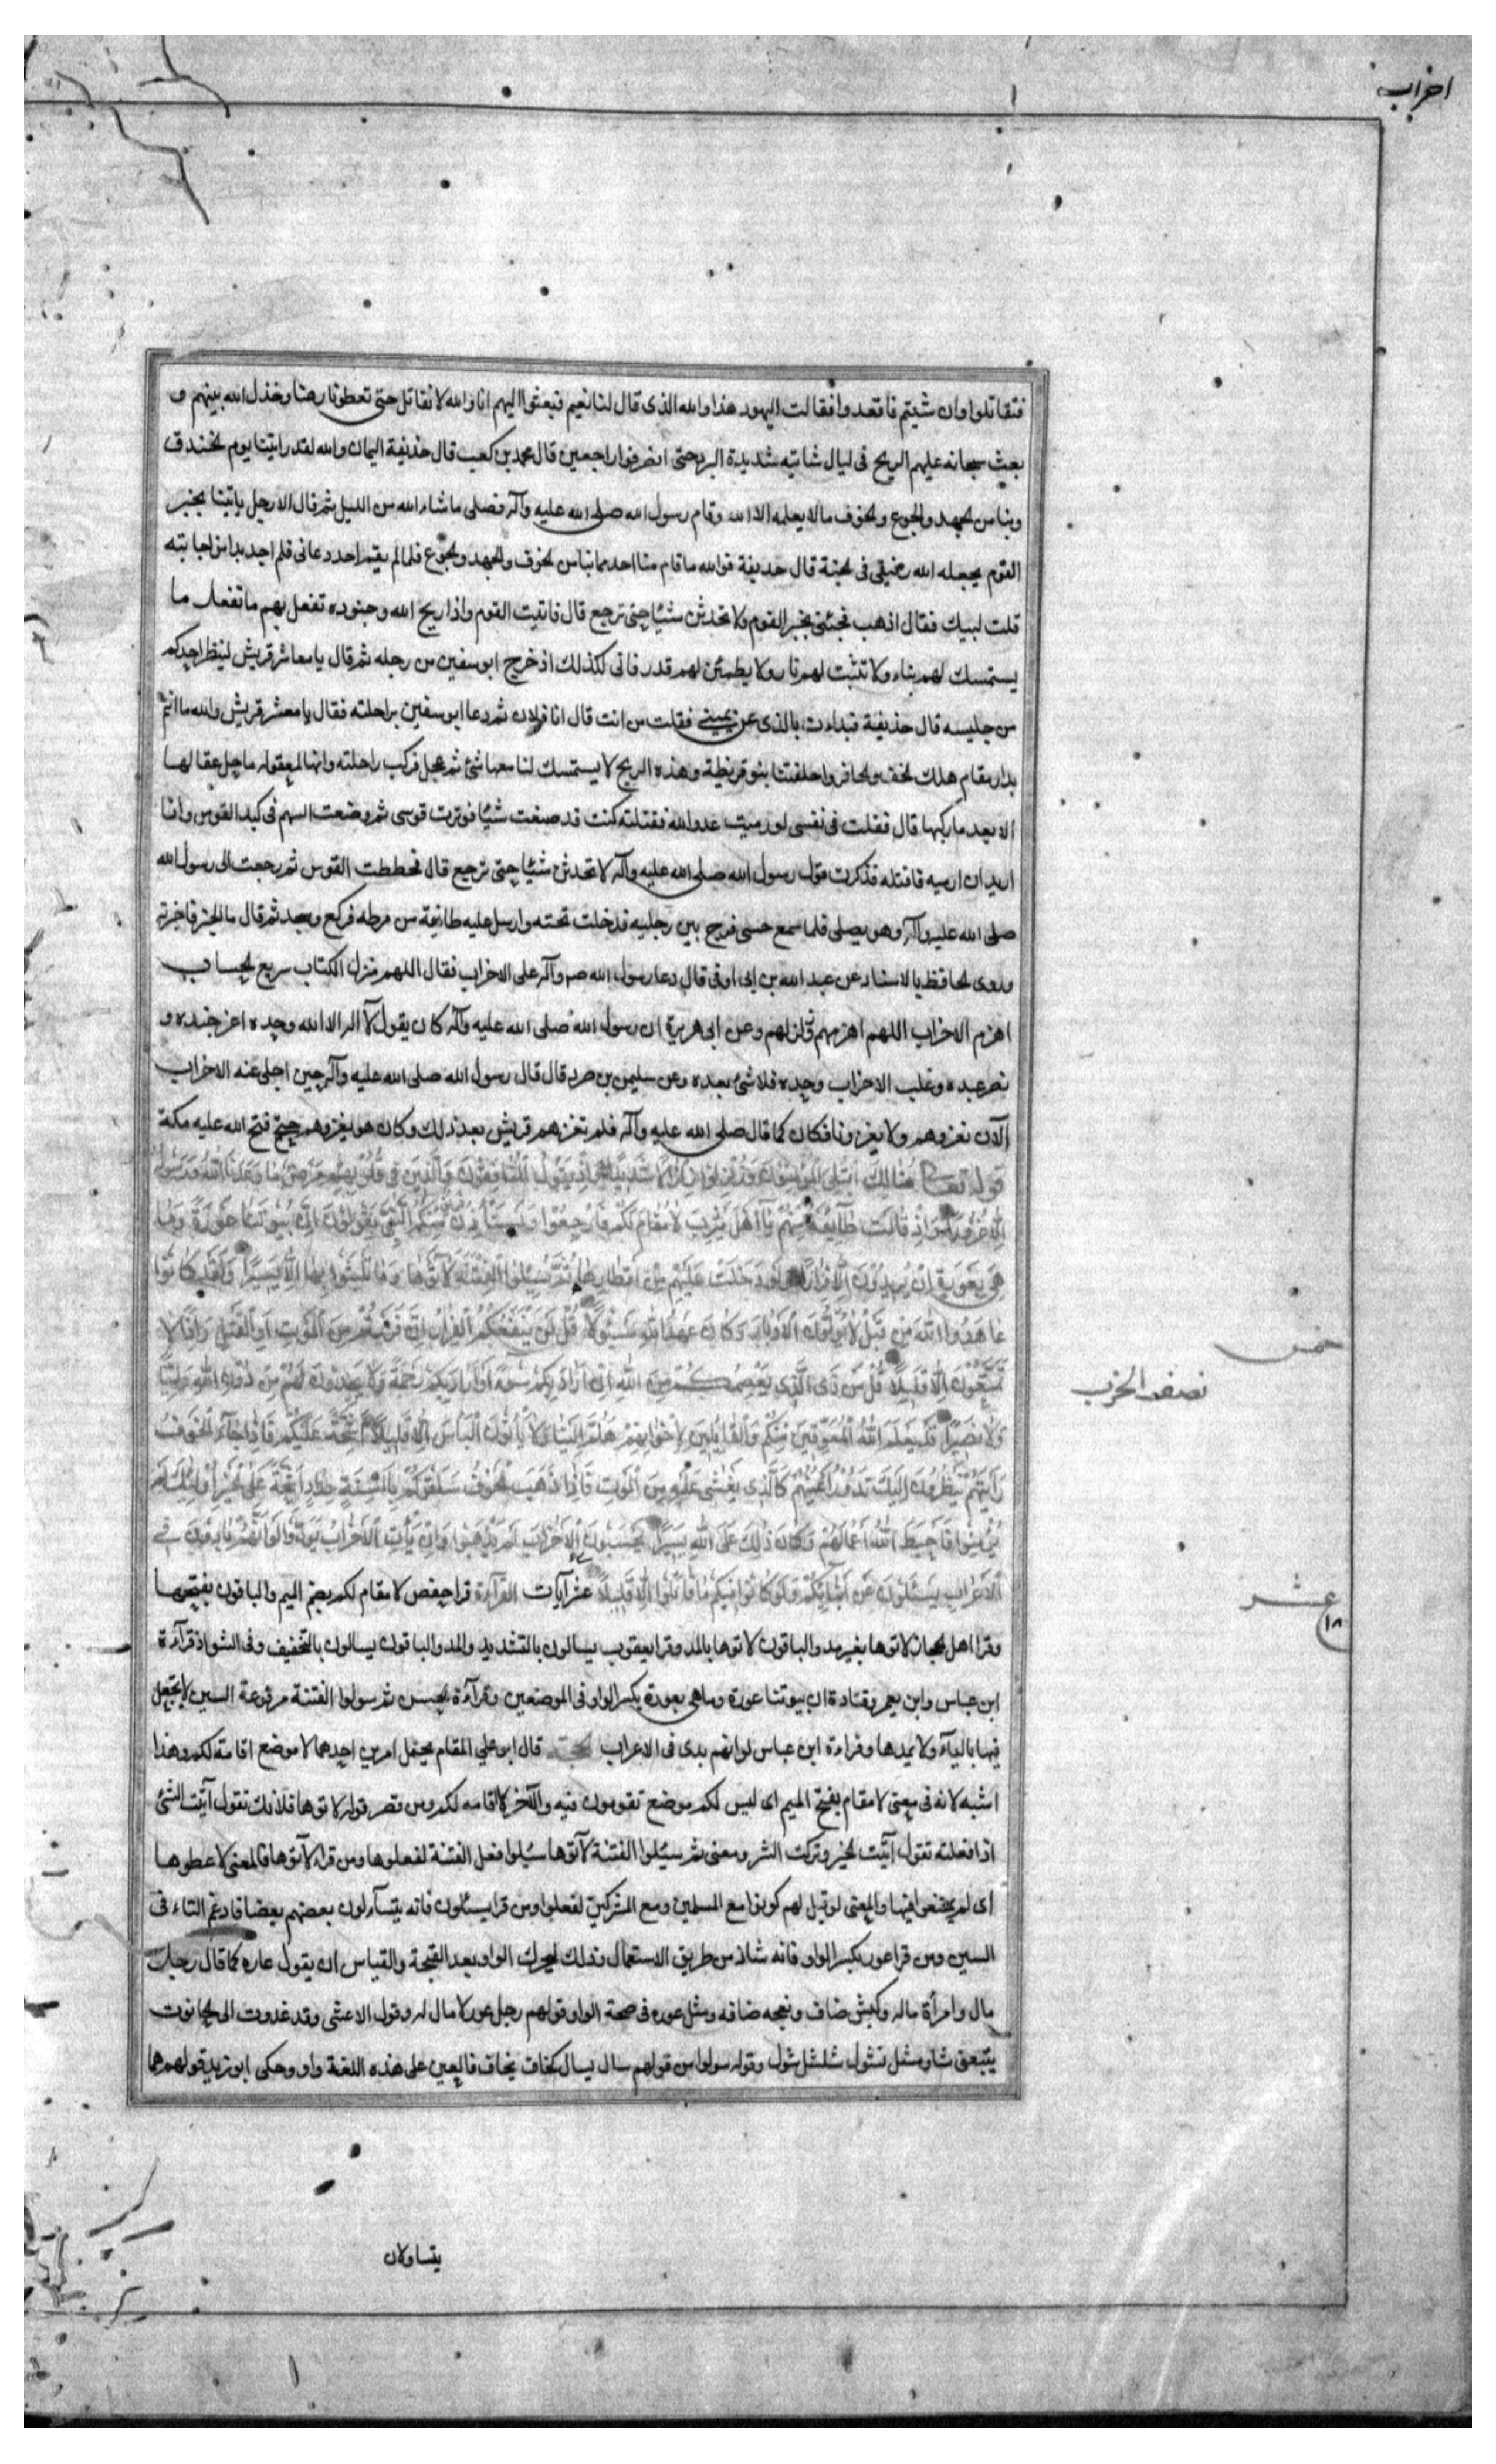 احزاب
فتقاتلوا وان شيتم فاقعدوا فقالت اليهود هذا والله الذى قال لنا نعيم فبعثوا اليهم انا والله لا نقاتل حتى تعطونا رهنا وخذل الله بينهم و
بعث سبحانه عليهم الريح فى ليال شاتيه شديدة البرد حتى انصرفوا راجعين قال محمد بن كعب قال حذيفة اليمان والله لقد رايتنا يوم الخندق
وبنا من الجهد والجوع والخوف ما لا يعلمه الا الله وقام رسول الله صلى الله عليه وآله فصلى ما شاء الله من الليل ثم قال الا رجل ياتينا بخبر
القوم يجعله الله رفيقى فى الجنة قال حذيفة فوالله ما قام منا احد مما بنا من الخوف والجهد والجوع فلما لم يقم احد دعانى فلم اجد بدا من اجابته
قلت لبيك فقال اذهب فجئنى بخبر القوم ولا تحدثن شيئا حتى ترجع قال فاتيت القوم واذا ريح الله وجنوده تفعل بهم ما تفعل ما
يستمسك لهم بناء ولا تثبت لهم نار ولا يطمئن لهم قدر فانى لكذلك اذ خرج ابو سفين من رحله ثم قال يا معاشر قريش لينظر احدكم
من جليسه قال حذيفة فبدات بالذى عن يمينى فقلت من انت قال انا فلان ثم دعا ابو سفين براحلته فقال يا معشر قريش والله ما انتم
بدار مقام هلك الخف والحافر واخلفتنا بنو قريظة وهذه الريح لا يستمسك لنا معها شئ ثم عجل فركب راحلته وانها لمعقوله ما حل عقالها
الا بعد ما ركبها قال فقلت فى نفسى لو رميت عدو الله فقتلته كنت قد صنعت شيئا فوترت قوسى ثم وضعت السهم فى كبد القوس وانا
اريد ان ارميه فاقتله فذكرت قول رسول الله صلى الله عليه وآله لا تحدثن شيئا حتى ترجع قال فحططت القوس ثم رجعت الى رسول الله
صلى الله عليه وآله وهو يصلى فلما سمع حسى فرج بين رجليه فدخلت تحته وارسل عليه طائفة من مرطه فركع وسجد ثم قال ما الخبر فاخبرته
وروى الحافظ بالاسناد عن عبد الله بن ابى اوفى قال دعا رسول الله ص وآله على الاحزاب فقال اللهم منزل الكتاب سريع الحساب
اهزم الاحزاب اللهم اهزمهم وزلزلهم وعن ابى هريرة ان رسول الله صلى الله عليه وآله كان يقول لآ اله الا الله وحده اعز جنده و
نصر عبده وغلب الاحزاب وحده فلا شئ بعده وعن سليمن بن صرد قال قال رسول الله صلى الله عليه وآله حين اجلى عنه الاحزاب
الآن نغزوهم ولا يغزوننا فكان كما قال صلى الله عليه وآله فلم تغزهم قريش بعد ذلك وكان هو يغزوهم حتى فتح الله عليه مكة
قوله تعالى هُنالِكَ ابْتُلِيَ الْمُؤْمِنُونَ وَزُلْزِلُوا زِلْزَالًا شَدِيدًا وَاِذْ يَقُولُ الْمُنَافِقُونَ وَالَّذِينَ فِى قُلُوبِهِمْ مَرَضٌ مَا وَعَدَنَا اللهُ وَرَسُولُهُ
اِلَّا غُرُورًا وَاِذْ قَالَتْ طَآئِفَةٌ مِنْهُمْ يَآ اَهْلَ يَثْرِبَ لَا مُقَامَ لَكُمْ فَارْجِعُوا وَيَسْتَأْذِنُ فَرِيقٌ مِنْهُمُ النَّبِيَّ يَقُولُونَ اِنَّ بُيُوتَنَا عَوْرَةٌ وَمَا
هِيَ بِعَوْرَةٍ اِنْ يُرِيدُونَ اِلَّا فِرَارًا وَلَوْ دُخِلَتْ عَلَيْهِمْ مِنْ اَقْطَارِهَا ثُمَّ سُئِلُوا الْفِتْنَةَ لَاٰتَوْهَا وَمَا تَلَبَّثُوا بِهَا اِلَّا يَسِيرًا وَلَقَدْ كَانُوا
عَاهَدُوا اللهَ مِنْ قَبْلُ لَا يُوَلُّونَ الْاَدْبَارَ وَكَانَ عَهْدُ اللهِ مَسْئُولًا قُلْ لَنْ يَنْفَعَكُمُ الْفِرَارُ اِنْ فَرَرْتُمْ مِنَ الْمَوْتِ اَوِ الْقَتْلِ وَاِذًا لَا
تُمَتَّعُونَ اِلَّا قَلِيلًا قُلْ مَنْ ذَا الَّذِي يَعْصِمُكُمْ مِنَ اللهِ اِنْ اَرَادَ بِكُمْ سُوءًا اَوْ اَرَادَ بِكُمْ رَحْمَةً وَلَا يَجِدُونَ لَهُمْ مِنْ دُونِ اللهِ وَلِيًّا
وَلَا نَصِيرًا قَدْ يَعْلَمُ اللهُ الْمُعَوِّقِينَ مِنْكُمْ وَالْقَآئِلِينَ لِاِخْوَانِهِمْ هَلُمَّ اِلَيْنَا وَلَا يَأْتُونَ الْبَأْسَ اِلَّا قَلِيلًا اَشِحَّةً عَلَيْكُمْ فَاِذَا جَآءَ الْخَوْفُ
رَاَيْتَهُمْ يَنْظُرُونَ اِلَيْكَ تَدُورُ اَعْيُنُهُمْ كَالَّذِي يُغْشٰى عَلَيْهِ مِنَ الْمَوْتِ فَاِذَا ذَهَبَ الْخَوْفُ سَلَقُوكُمْ بِاَلْسِنَةٍ حِدَادٍ اَشِحَّةً عَلَى الْخَيْرِ اُولٰئِكَ لَمْ
يُؤْمِنُوا فَاَحْبَطَ اللهُ اَعْمَالَهُمْ وَكَانَ ذٰلِكَ عَلَى اللهِ يَسِيرًا يَحْسَبُونَ الْاَحْزَابَ لَمْ يَذْهَبُوا وَاِنْ يَأْتِ الْاَحْزَابُ يَوَدُّوا لَوْ اَنَّهُمْ بَادُونَ فِى
الْاَعْرَابِ يَسْئَلُونَ عَنْ اَنْبَآئِكُمْ وَلَوْ كَانُوا فِيكُمْ مَا قَاتَلُوا اِلَّا قَلِيلًا عشر آيات القرآءة قرا حفص لا مقام لكم بضم الميم والباقون بفتحها
وقرا اهل الحجاز لاتوها بغير مد والباقون لآتوها بالمد وقرا يعقوب يسالون بالتشديد والمد والباقون يسالون بالتخفيف وفى الشواذ قرآءة
ابن عباس وابن يعمر وقتادة ان بيوتنا عورة وما هى بعورة بكسر الواو فى الموضعين وقرآءة الحسن ثم سولوا الفتنة مرفوعة السين لا يجعل
فيها بالياء ولا يمدها وقراءة ابن عباس لو انهم بدى فى الاعراب الحجة قال ابو على المقام يحتمل امرين احدهما لا موضع اقامة لكم وهذا
اشبه لانه فى معنى لا مقام بفتح الميم اى ليس لكم موضع تقومون فيه والآخر لا اقامه لكم ومن قصر قوله لاتوها فلانك تقول اتيت الشئ
اذا فعلته تقول اتيت الخير وتركت الشر ومعنى ثم سئلوا الفتنة لآتوها سئلوا فعل الفتنة لفعلوها ومن قرا لآتوها فالمعنى لاعطوها
اى لم يمتنعوا منها والمعنى لو قيل لهم كونوا مع المسلمين ومع المشركين لفعلوا ومن قرا يسئلون فانه يتسآءلون بعضهم بعضا فادغم التاء فى
السين ومن قرا عورة بكسر الواو فانه شاذ من طريق الاستعمال وذلك لتحرك الواو بعد الفتحة والقياس ان يقول عاره كما قال رجل
مال وامرأة ماله وكبش ضاف ونعجه ضافه ومثل عوره فى صحة الواو قولهم رجل عور لا مال له وقول الاعشى وقد غدوت الى الحانوت
يتبعنى شاو مشل نشول شلشل شول وقوله سولوا من قولهم سال يسال كخاف يخاف فالعين على هذه اللغة واو وحكى ابو زيد قولهم هما
يتساولان
خمس
نصف الحزب
عشر
١٨